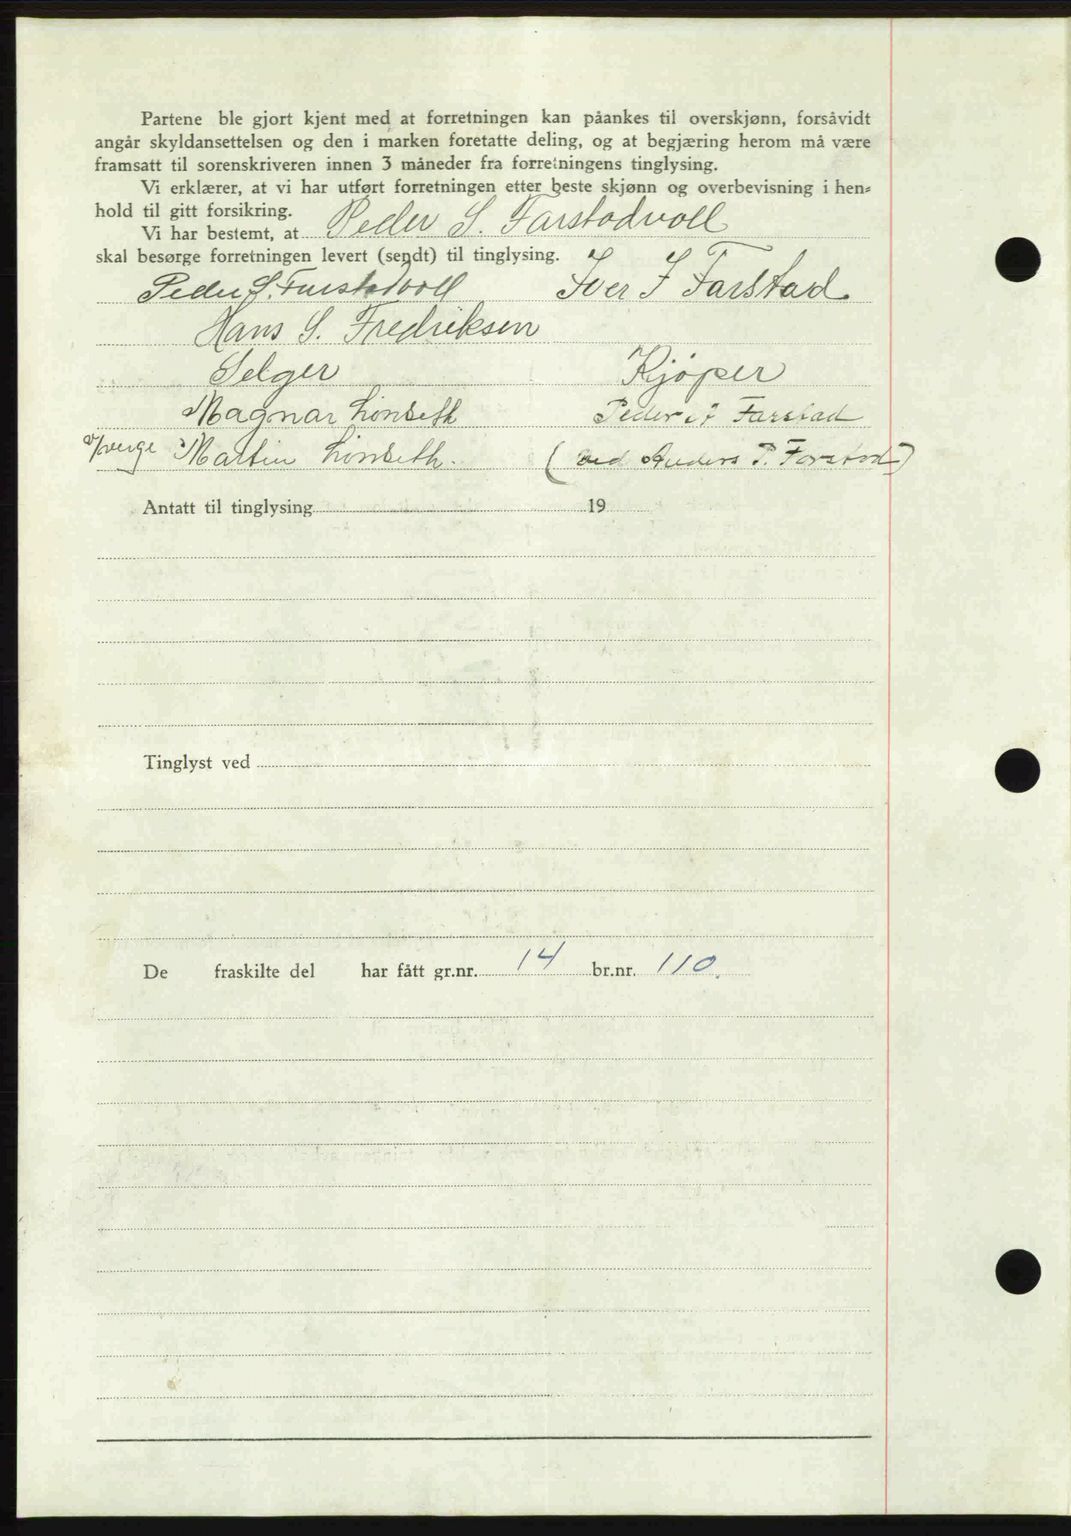 Partene ble gjort kjent med at forretningen kan påankes til overskjønn, forsåvidt
angår skyldansettelsen og den i marken foretatte deling, og at begjæring herom må være
framsatt til sorenskriveren innen 3 måneder fra forretningens tinglysing.
Vi erklærer, at vi har utført forretningen etter beste skjønn og overbevisning i hen=
hold til gitt forsikring.
Vi har bestemt, at Peder S. Farstadvoll
skal besørge forretningen levert (sendt) til tinglysing.
Peder S. Farstadvoll Iver J Farstad
Hans S. Fredriksen
Selger Kjøper
Magnar Lönseth Peder A Farstad
v/verge Martin Lönseth. (ved Anders P. Farstad)
Antatt til tinglysing 19
Tinglyst ved
De fraskilte del har fått gr.nr. 14 br.nr. 110.